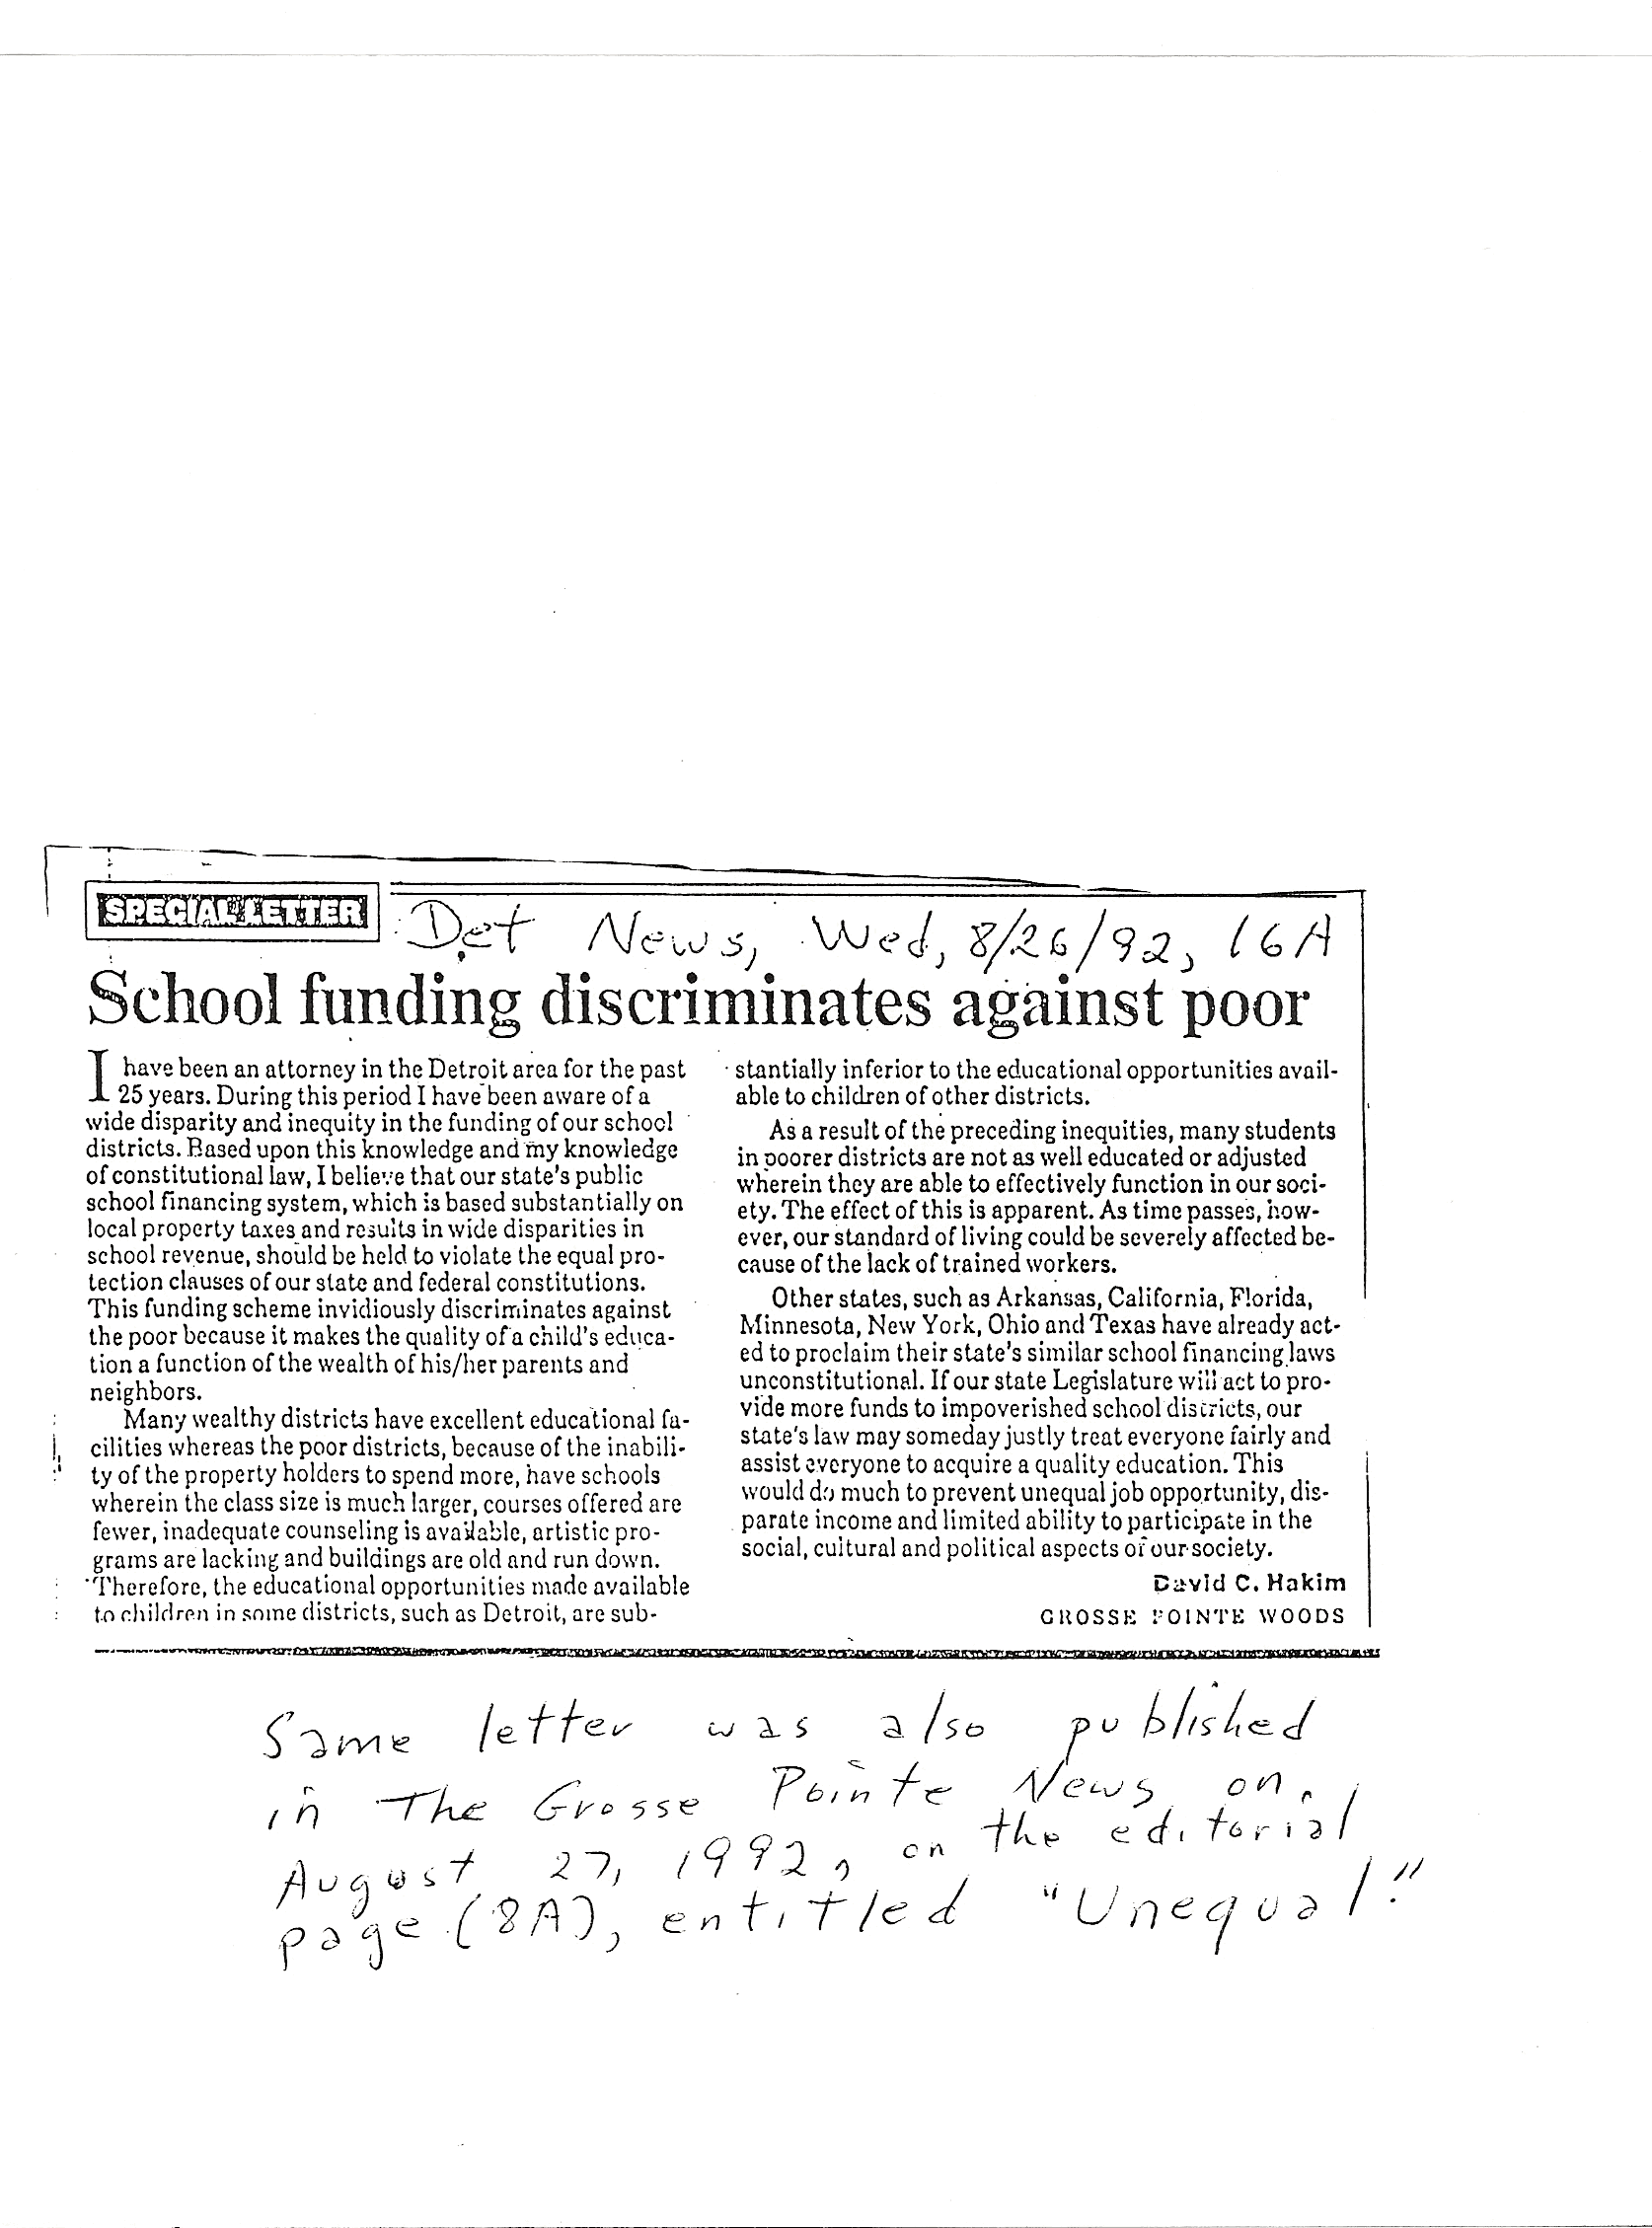 SPECIAL LETTER
Det News, Wed, 8/26/92, 16A
School funding discriminates against poor
I have been an attorney in the Detroit area for the past
25 years. During this period I have been aware of a
wide disparity and inequity in the funding of our school
districts. Based upon this knowledge and my knowledge
of constitutional law, I believe that our state's public
school financing system, which is based substantially on
local property taxes and results in wide disparities in
school revenue, should be held to violate the equal pro-
tection clauses of our state and federal constitutions.
This funding scheme invidiously discriminates against
the poor because it makes the quality of a child's educa-
tion a function of the wealth of his/her parents and
neighbors.
Many wealthy districts have excellent educational fa-
cilities whereas the poor districts, because of the inabili-
ty of the property holders to spend more, have schools
wherein the class size is much larger, courses offered are
fewer, inadequate counseling is available, artistic pro-
grams are lacking and buildings are old and run down.
Therefore, the educational opportunities made available
to children in some districts, such as Detroit, are sub-
stantially inferior to the educational opportunities avail-
able to children of other districts.
As a result of the preceding inequities, many students
in poorer districts are not as well educated or adjusted
wherein they are able to effectively function in our soci-
ety. The effect of this is apparent. As time passes, how-
ever, our standard of living could be severely affected be-
cause of the lack of trained workers.
Other states, such as Arkansas, California, Florida,
Minnesota, New York, Ohio and Texas have already act-
ed to proclaim their state's similar school financing laws
unconstitutional. If our state Legislature will act to pro-
vide more funds to impoverished school districts, our
state's law may someday justly treat everyone fairly and
assist everyone to acquire a quality education. This
would do much to prevent unequal job opportunity, dis-
parate income and limited ability to participate in the
social, cultural and political aspects of our society.
David C. Hakim
GROSSE POINTE WOODS
Same letter was also published
in The Grosse Pointe News on
August 27, 1992, on the editorial
page (8A), entitled "Unequal."